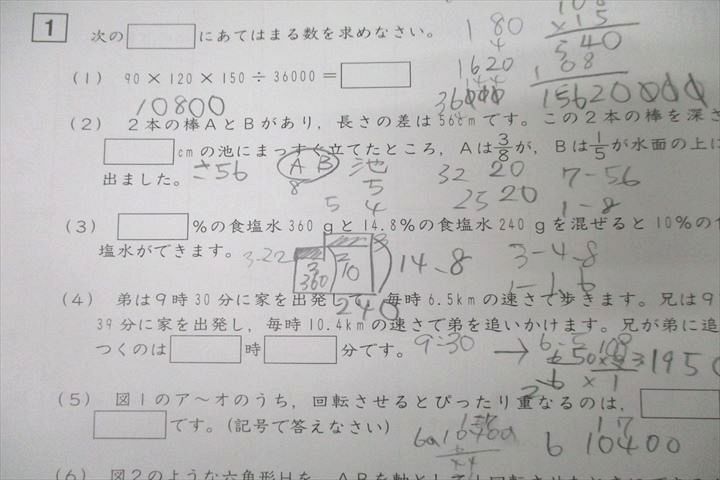 1 次の にあてはまる数を求めなさい。
(1) 90×120×150÷36000=
10800
(2) 2本の棒AとBがあり，長さの差は56cmです。この2本の棒を深さ
cmの池にまっすぐ立てたところ，Aは3/8が，Bは1/5が水面の上に
出ました。
(3) %の食塩水360gと14.8%の食塩水240gを混ぜると10%の
塩水ができます。
(4) 弟は9時30分に家を出発して，毎時6.5kmの速さで歩きます。兄は9
39分に家を出発し，毎時10.4kmの速さで弟を追いかけます。兄が弟に追
つくのは 時 分です。
(5) 図1のア〜オのうち，回転させるとぴったり重なるのは，
です。(記号で答えなさい)
180
1620
540
108
15620000
さ56
A B
池
8
5
5 4
32 20
25 20
7-56
1-8
3-22
360
10
14.8
240
3-4.8
1-1.6
9:30
→
10400
6 10400